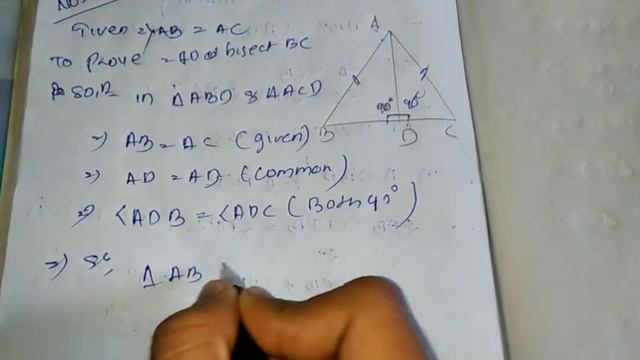 Given => AB = AC
To Prove = AD bisect BC
SOln in △ABD & △ACD
=> AB = AC (given)
=> AD = AD (common)
=> <ADB = <ADC (Both 90°)
=> So, △ AB
A
90° 90°
B D C